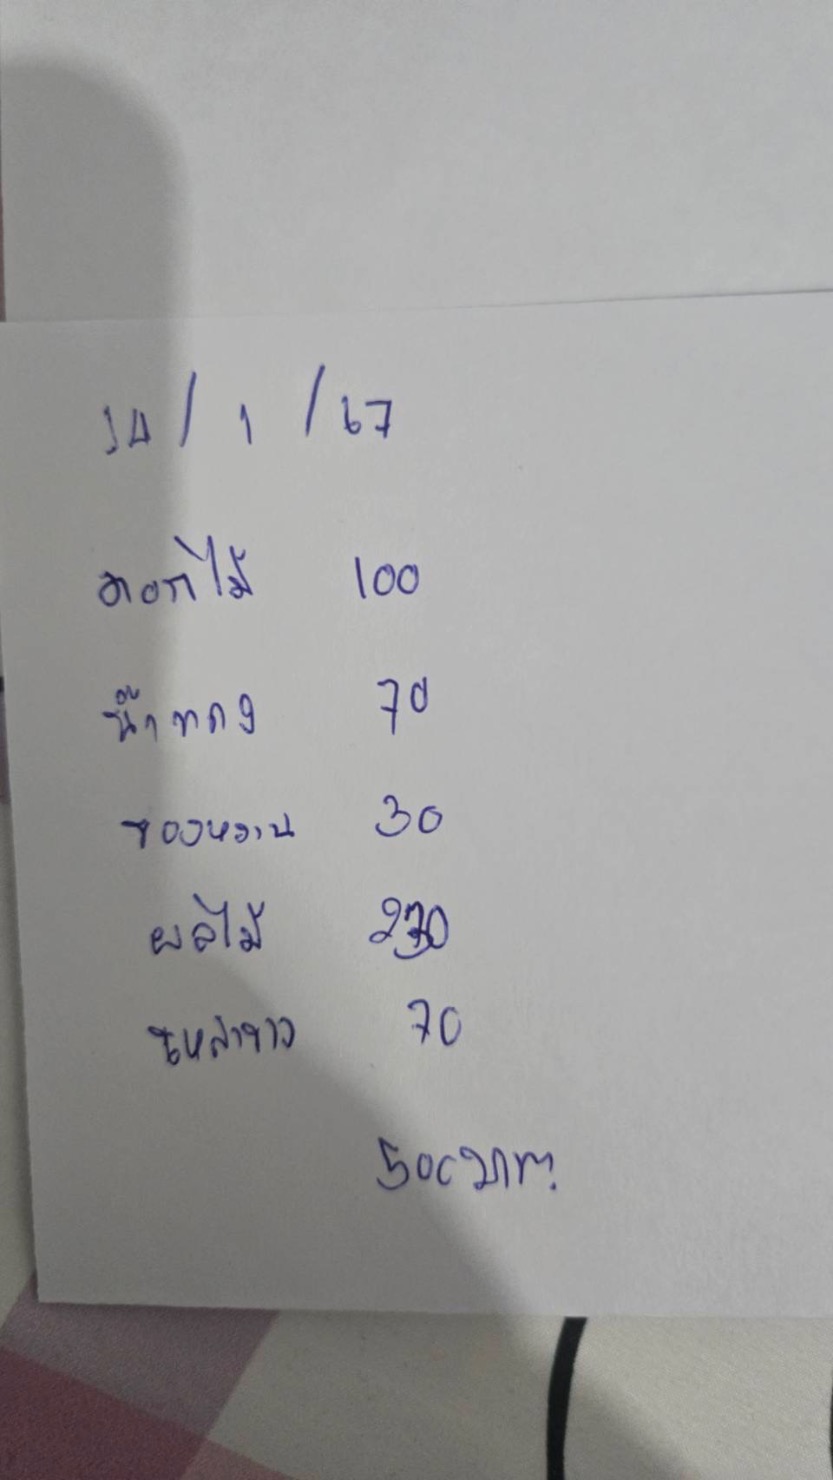 14/1/67
ดอกไม้ 100
น้ำแดง 70
ของหวาน 30
ผลไม้ 230
เหล้าขาว 70
500บาท